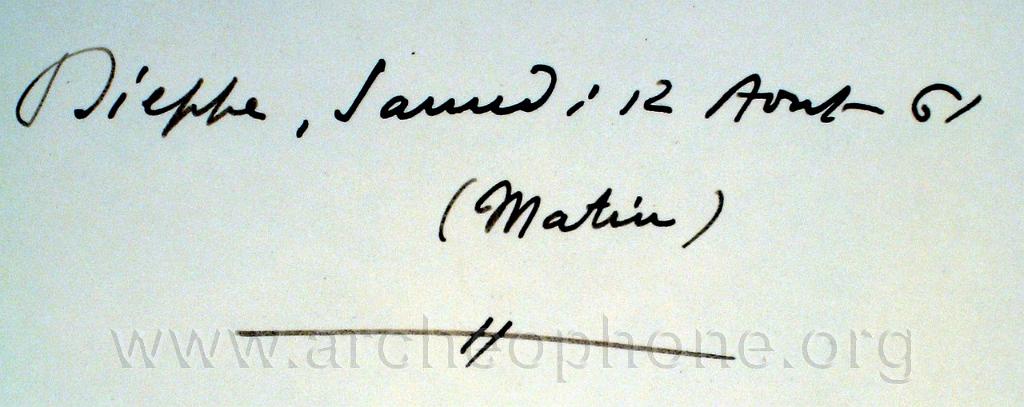 Dieppe, Samedi 12 Aout 61
(Matin)
www.archeophone.org